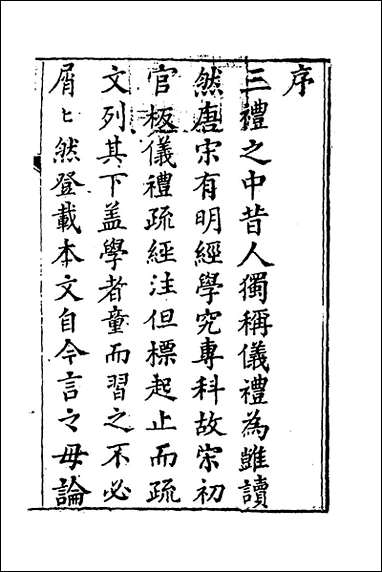 序
三禮之中昔人獨稱儀禮為雖讀
然唐宋有明經學究專科故宋初
官板儀禮疏經注但標起止而疏
文列其下盖學者童而習之不必
屑〻然登載本文自今言之毋論